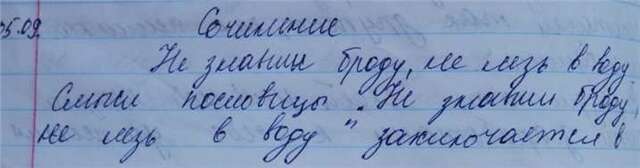 05.09. Сочинение
Не знавши броду, не лезь в воду
Смысл пословицы „Не знавши броду,
не лезь в воду" заключается в